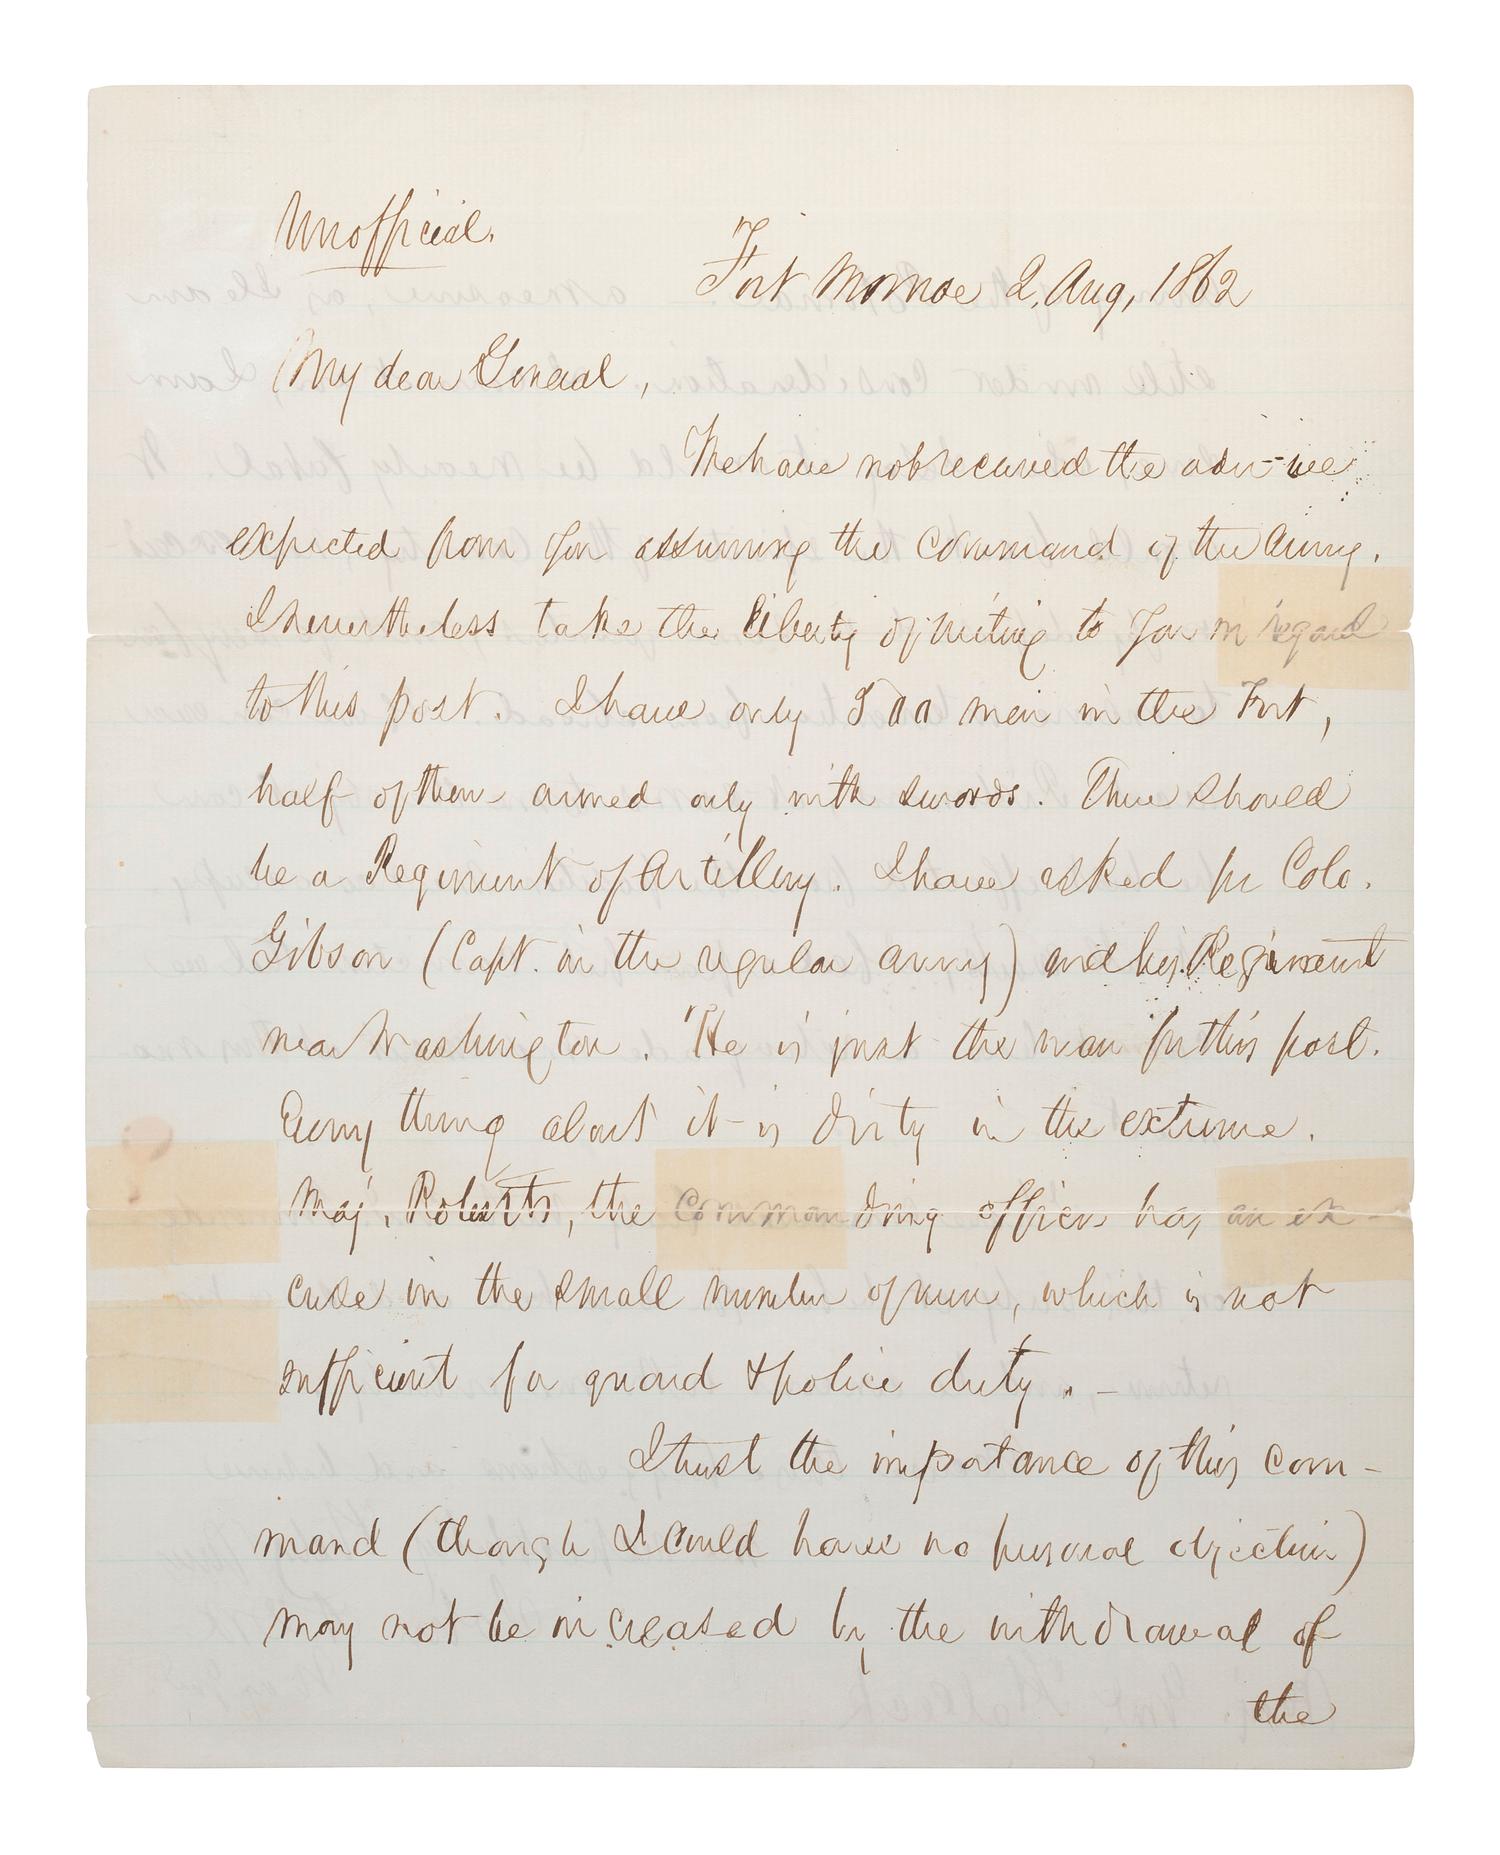 Unofficial.
Fort Monroe 2, Aug, 1862
My dear General,
We have not received the advice
expected from you assuming the command of the Army.
I nevertheless take the liberty of writing to you in regard
to this post. I have only 500 men in the Fort,
half of them armed only with swords. There should
be a Regiment of Artillery. I have asked for Colo.
Gibson (Capt. in the regular army) and his Regiment
near Washington. He is just the man for this post.
Every thing about it is dirty in the extreme.
Maj. Roberts, the commanding officer has an ex-
cuse in the small number of men, which is not
sufficient for guard & police duty. -
I trust the importance of this com-
mand (though I could have no personal objection)
may not be increased by the withdrawal of
the